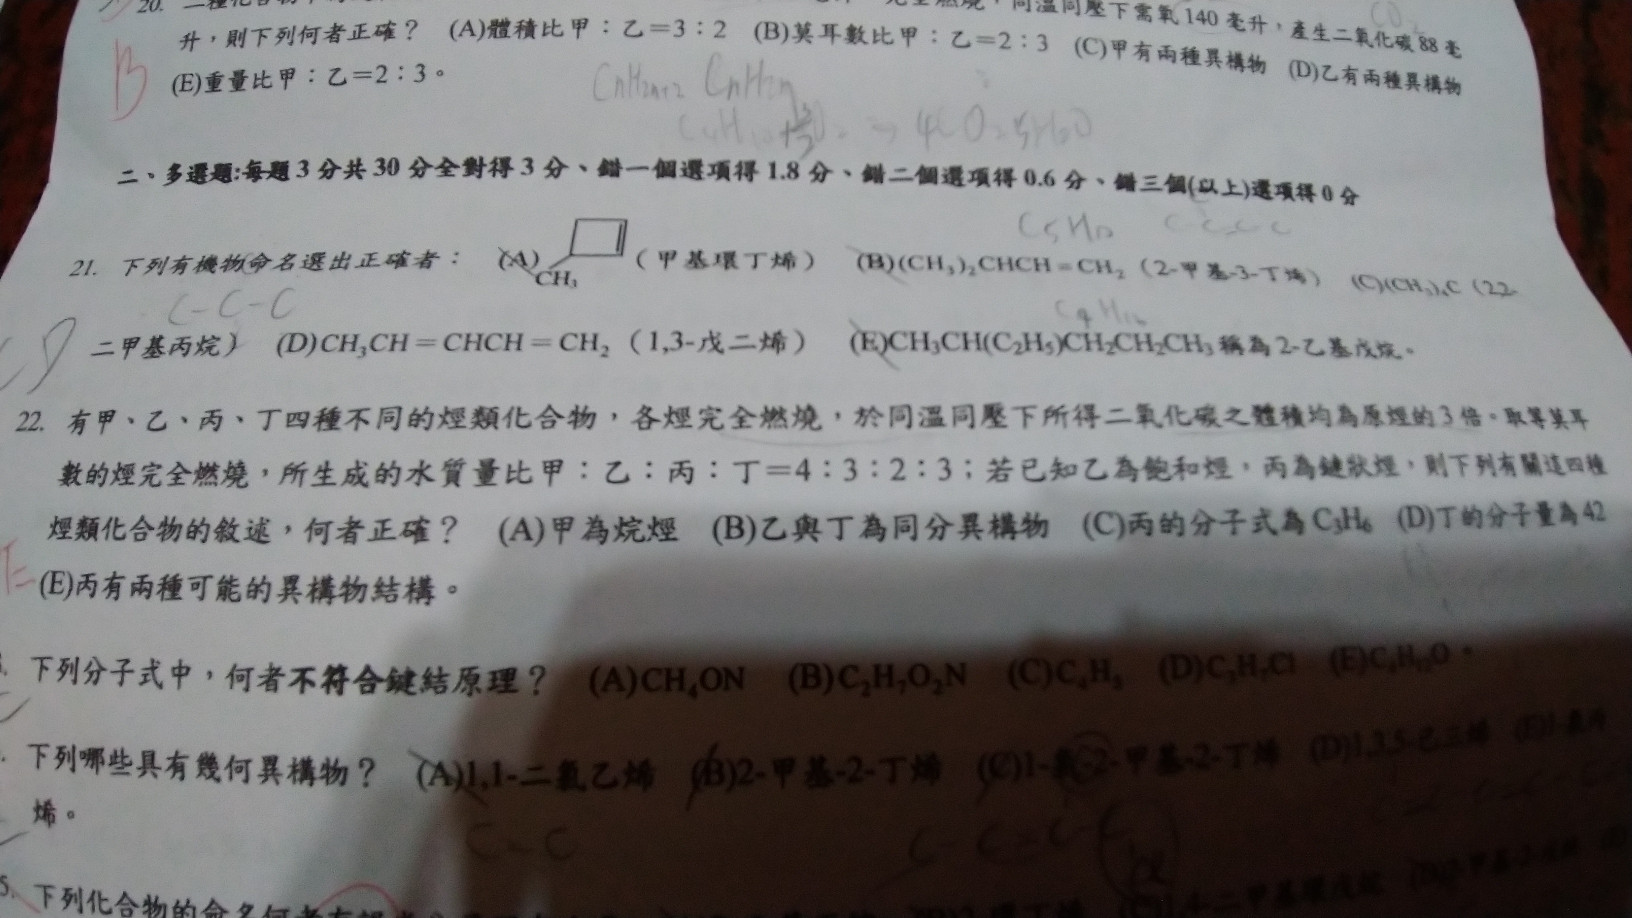 20. 二種化合物 完全燃燒，同溫同壓下需氧140毫升，產生二氧化碳88毫
升，則下列何者正確？ (A)體積比甲：乙＝3：2 (B)莫耳數比甲：乙＝2：3 (C)甲有兩種異構物 (D)乙有兩種異構物
(E)重量比甲：乙＝2：3。
B
CO₂
CnH2n+2 CnH2n
二、多選題:每題3分共30分全對得3分、錯一個選項得1.8分、錯二個選項得0.6分、錯三個(以上)選項得0分
21. 下列有機物命名選出正確者： (A) CH₃ （甲基環丁烯） (B)(CH₃)₂CHCH＝CH₂（2-甲基-3-丁烯） (C)(CH₃)₄C（2,2-
C-C-C
二甲基丙烷） (D)CH₃CH＝CHCH＝CH₂（1,3-戊二烯） (E)CH₃CH(C₂H₅)CH₂CH₂CH₃稱為2-乙基戊烷。
22. 有甲、乙、丙、丁四種不同的烴類化合物，各烴完全燃燒，於同溫同壓下所得二氧化碳之體積均為原烴的3倍。取等莫耳
數的烴完全燃燒，所生成的水質量比甲：乙：丙：丁＝4：3：2：3；若已知乙為飽和烴，丙為鏈狀烴，則下列有關這四種
烴類化合物的敘述，何者正確？ (A)甲為烷烴 (B)乙與丁為同分異構物 (C)丙的分子式為C₃H₆ (D)丁的分子量為42
(E)丙有兩種可能的異構物結構。
下列分子式中，何者不符合鍵結原理？ (A)CH₄ON (B)C₂H₇O₂N (C)C₄H₅ (D)C₃H₇Cl (E)C₄H₁₀O。
下列哪些具有幾何異構物？ (A)1,1-二氯乙烯 (B)2-甲基-2-丁烯 (C)1-氯-2-甲基-2-丁烯 (D)1,3,5-己三烯
烯。
C=C
5. 下列化合物的命名何者有